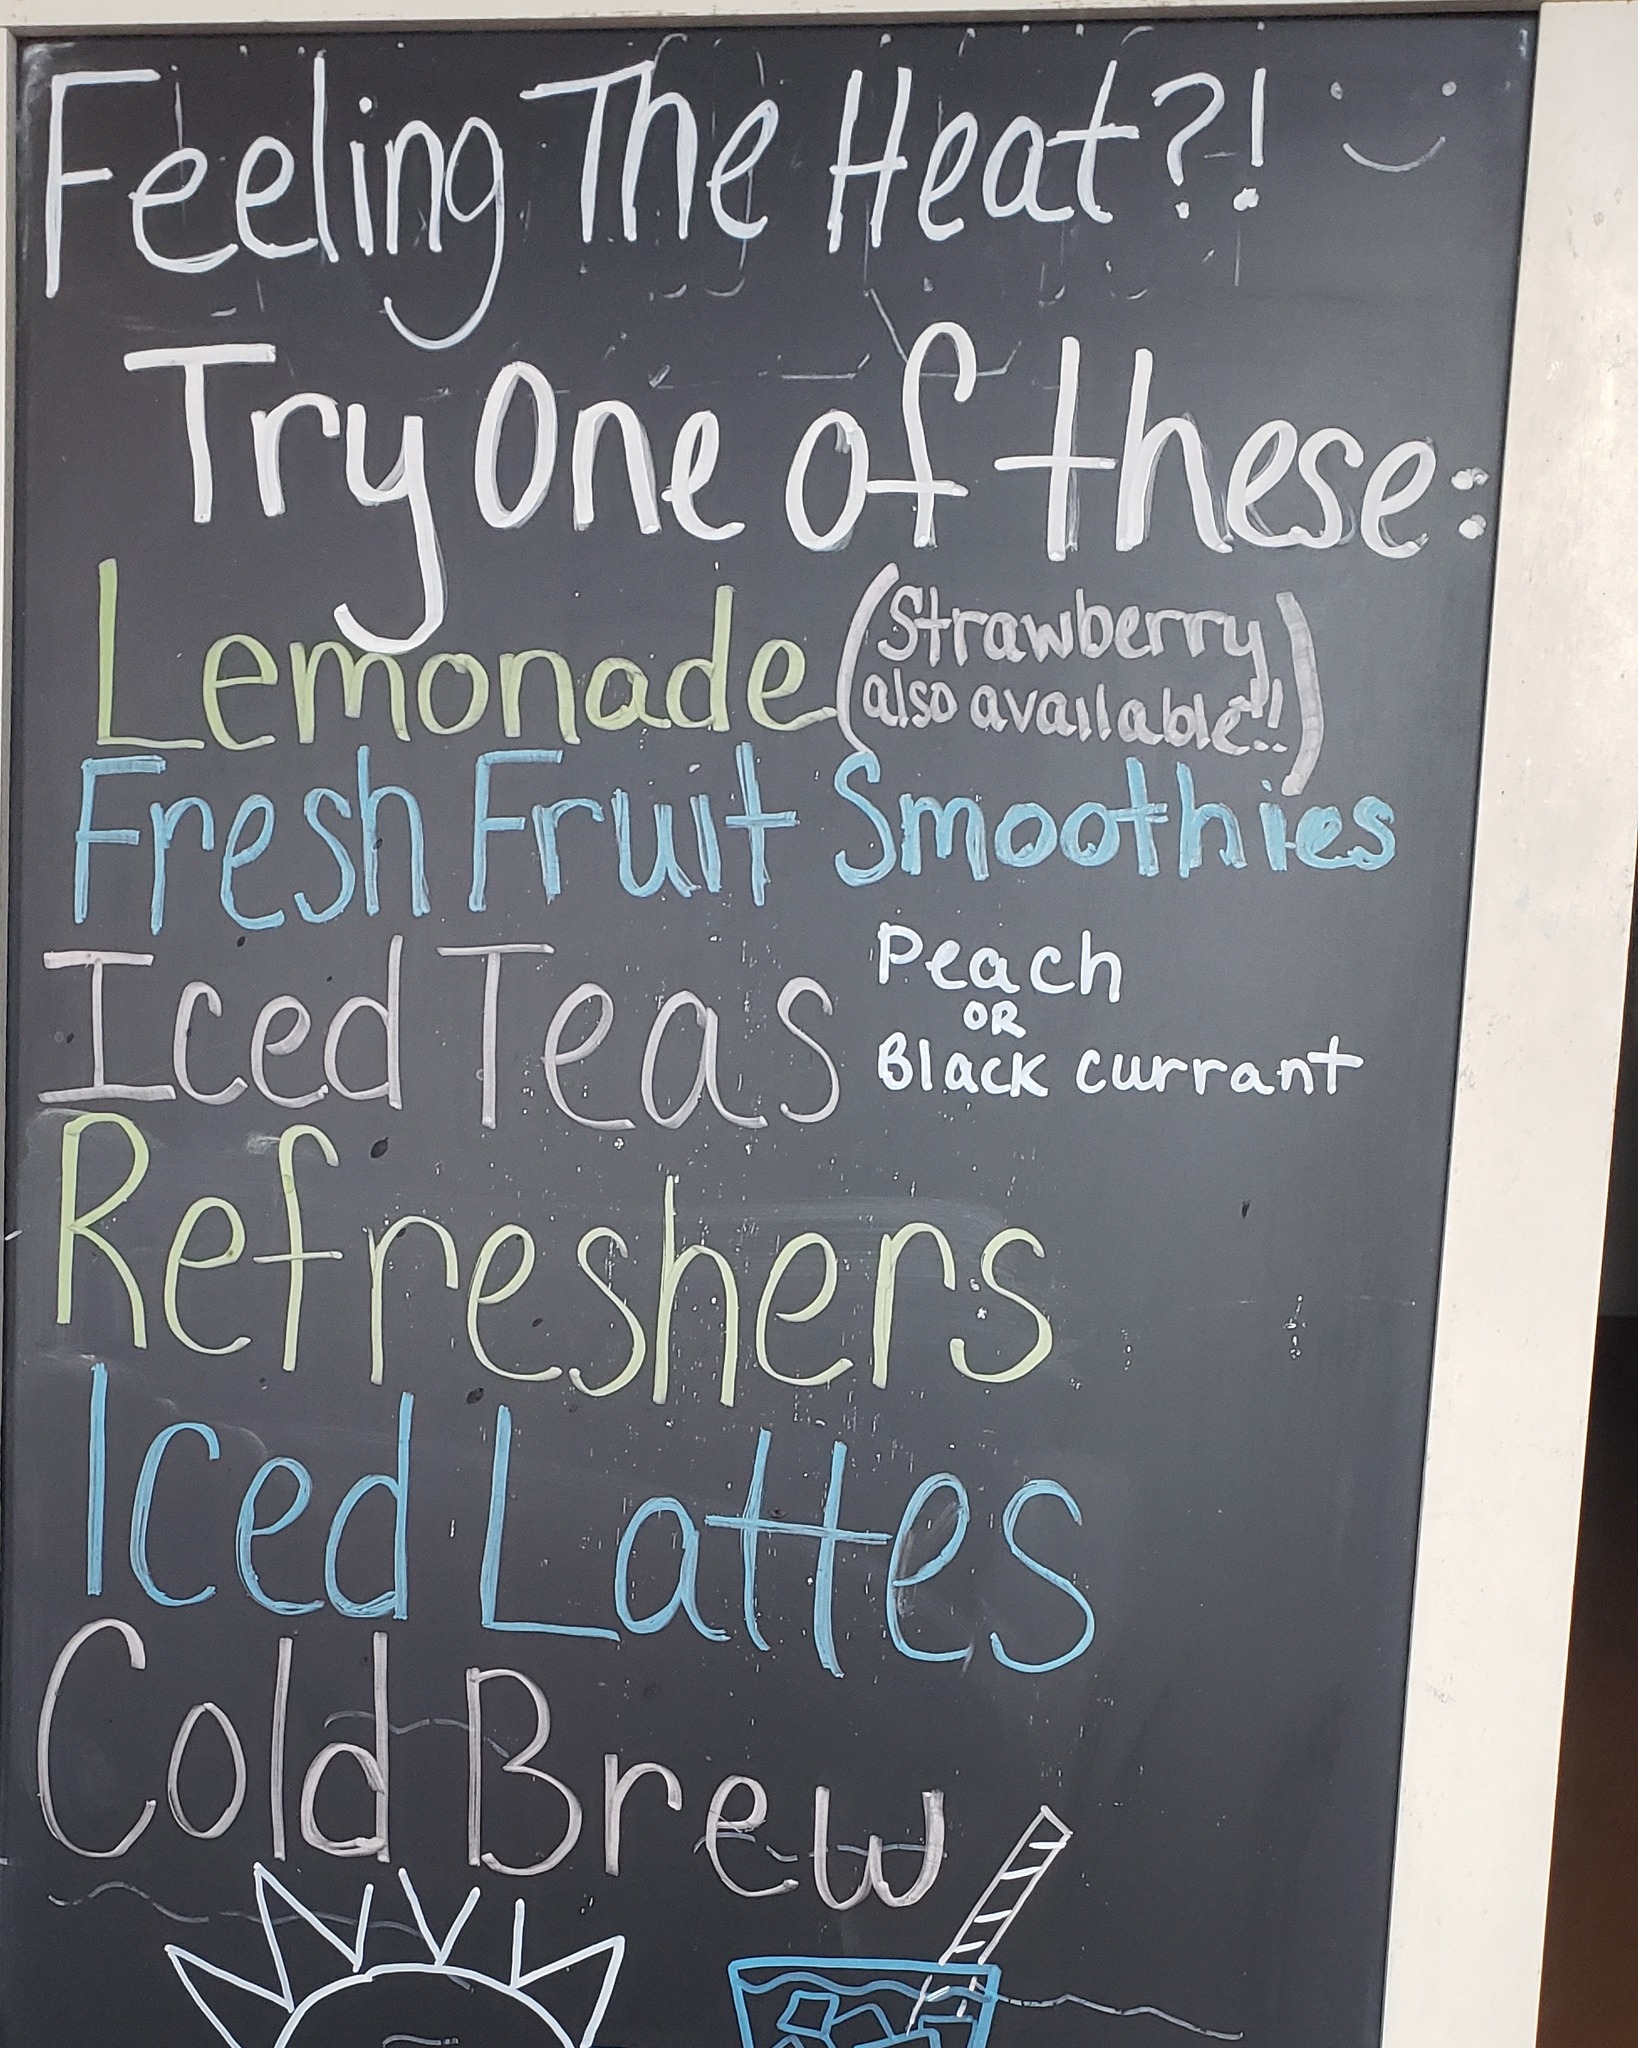 Feeling The Heat?!
Try One of these:
Lemonade (Strawberry
also available!!)
Fresh Fruit Smoothies
Iced Teas Peach
OR
Black currant
Refreshers
Iced Lattes
Cold Brew